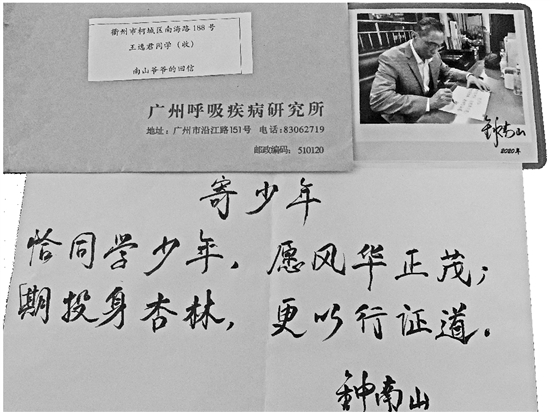 衢州市柯城区南海路188号
王逸君同学（收）
南山爷爷的回信
广州呼吸疾病研究所
地址：广州市沿江路151号 电话：83062719
邮政编码：510120
钟南山
2020年
寄少年
恰同学少年，愿风华正茂；
期投身杏林，更以行证道。
钟南山